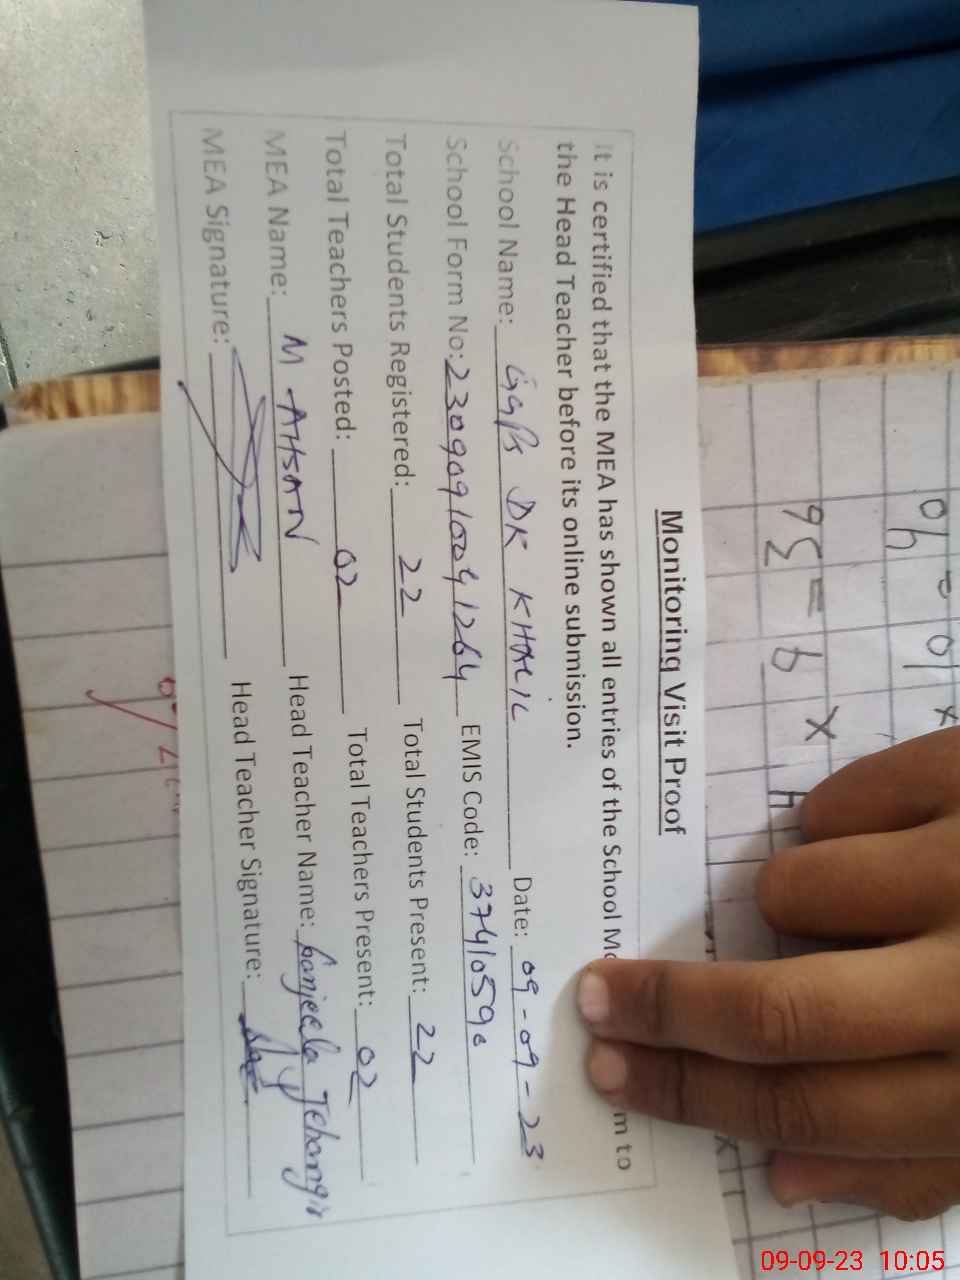 Monitoring Visit Proof
It is certified that the MEA has shown all entries of the School Mo m to
the Head Teacher before its online submission.
School Name: GGPS DK KHALIL Date: 09-09-23
School Form No: 23090910041264 EMIS Code: 37410590
Total Students Registered: 22 Total Students Present: 22
Total Teachers Posted: 02 Total Teachers Present: 02
MEA Name: M AHSAN Head Teacher Name: Jehangir
MEA Signature: Head Teacher Signature:
09-09-23 10:05